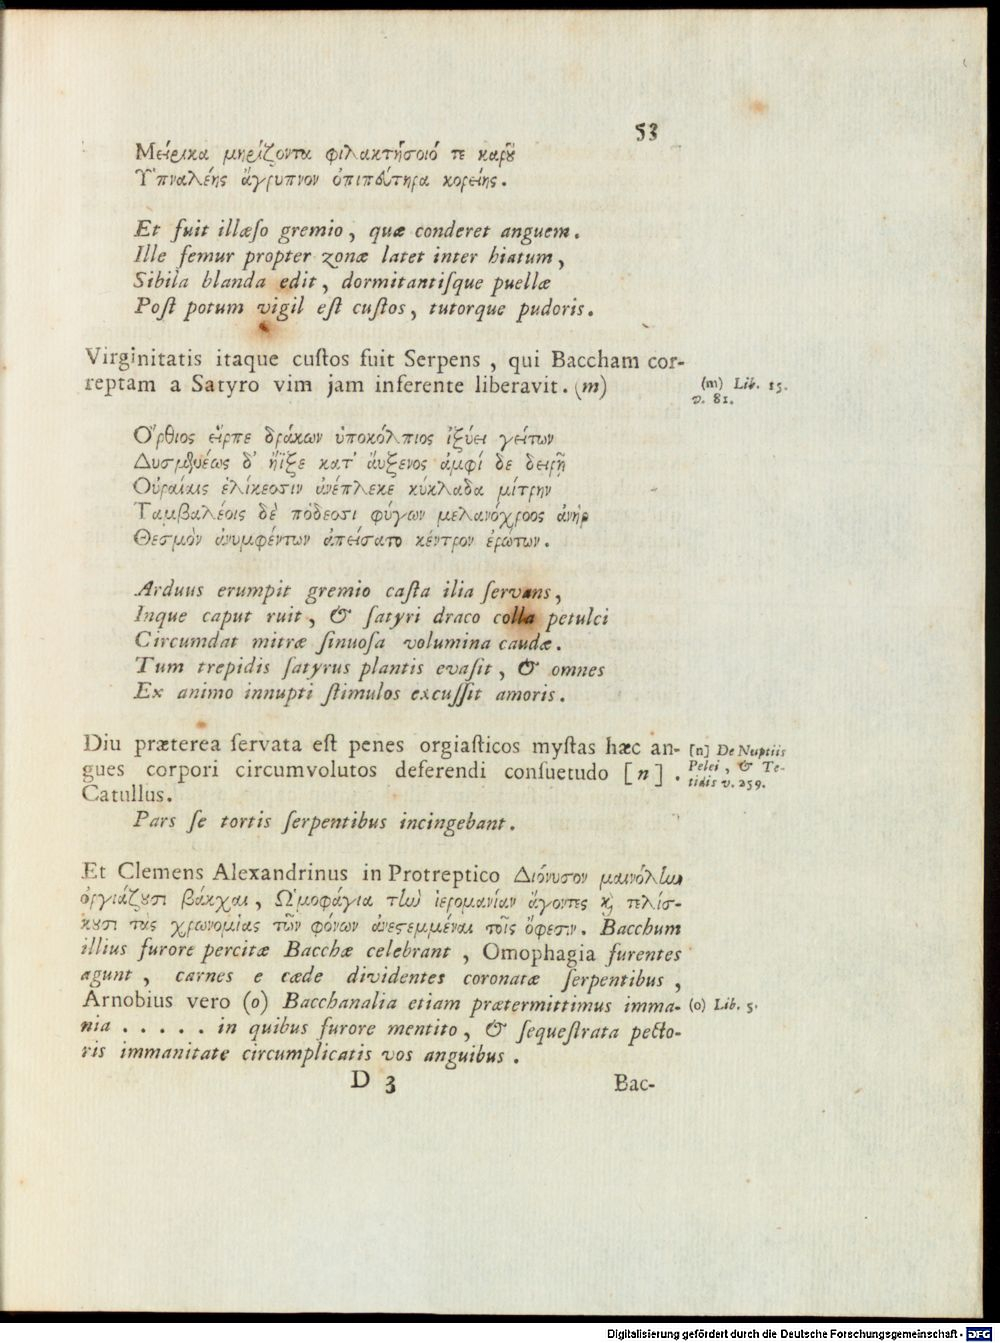 53
Μείρικα μηρίζοντα φιλακτήσοιό τε καρȣ͂
Ὑπναλέης ἄγρυπνον ὀπιπευτῆρα κορείης.
Et fuit illæſo gremio, quæ conderet anguem.
Ille femur propter zonæ latet inter hiatum,
Sibila blanda edit, dormitantiſque puellæ
Poſt potum vigil eſt cuſtos, tutorque pudoris.
Virginitatis itaque cuſtos fuit Serpens, qui Baccham cor-
reptam a Satyro vim jam inferente liberavit. (m)
(m) Lib. 15.
v. 81.
Ὄρθιος εἵρπε δράκων ὑποκόλπιος ἰξύει γείτων
Δυσμενέως δ᾽ ἤϊξε κατ᾽ ἄυξενος ἀμφί δε δειρῇ
Οὐραίαις ἑλίκεσσιν ἀνέπλεκε κύκλαδα μίτρην
Ταμβαλέοις δὲ πόδεσσι φύγων μελανόχροος ἀνήρ
Θεσμὸν ἀνυμφέντων ἀπείσατο κέντρον ἐρώτων.
Arduus erumpit gremio caſta ilia ſervans,
Inque caput ruit, & ſatyri draco colla petulci
Circumdat mitræ ſinuoſa volumina caudæ.
Tum trepidis ſatyrus plantis evaſit, & omnes
Ex animo innupti ſtimulos excuſſit amoris.
Diu præterea ſervata eſt penes orgiaſticos myſtas hæc an-
gues corpori circumvolutos deferendi conſuetudo [n].
Catullus.
[n] De Nuptiis
Pelei, & Te-
tidis v. 259.
Pars ſe tortis ſerpentibus incingebant.
Et Clemens Alexandrinus in Protreptico Διόνυσον μαινόλην
ὀργιάζȣσι βάκχαι, Ὠμοφάγια τὴν ἱερομανίαν ἄγοντες ϗ τελίσ-
κȣσι τὰς χρωνομίας τῶν φόνων ἀνεστεμμέναι τοῖς ὄφεσιν. Bacchum
illius furore percitæ Bacchæ celebrant, Omophagia furentes
agunt, carnes e cæde dividentes coronatæ ſerpentibus,
Arnobius vero (o) Bacchanalia etiam prætermittimus imma-
(o) Lib. 5.
nia . . . . . in quibus furore mentito, & ſequeſtrata pecto-
ris immanitate circumplicatis vos anguibus.
D 3 Bac-
Digitalisierung gefördert durch die Deutsche Forschungsgemeinschaft - DFG